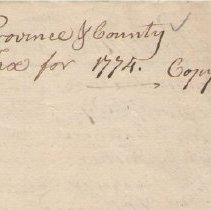 Province & County
Tax for 1774. Copy